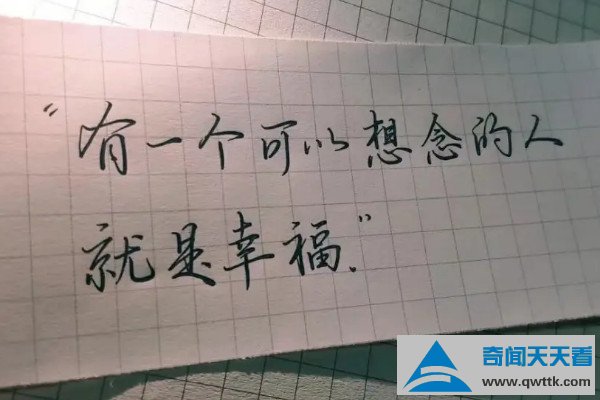 “有一个可以想念的人
就是幸福.”
奇闻天天看
www.qwttk.com